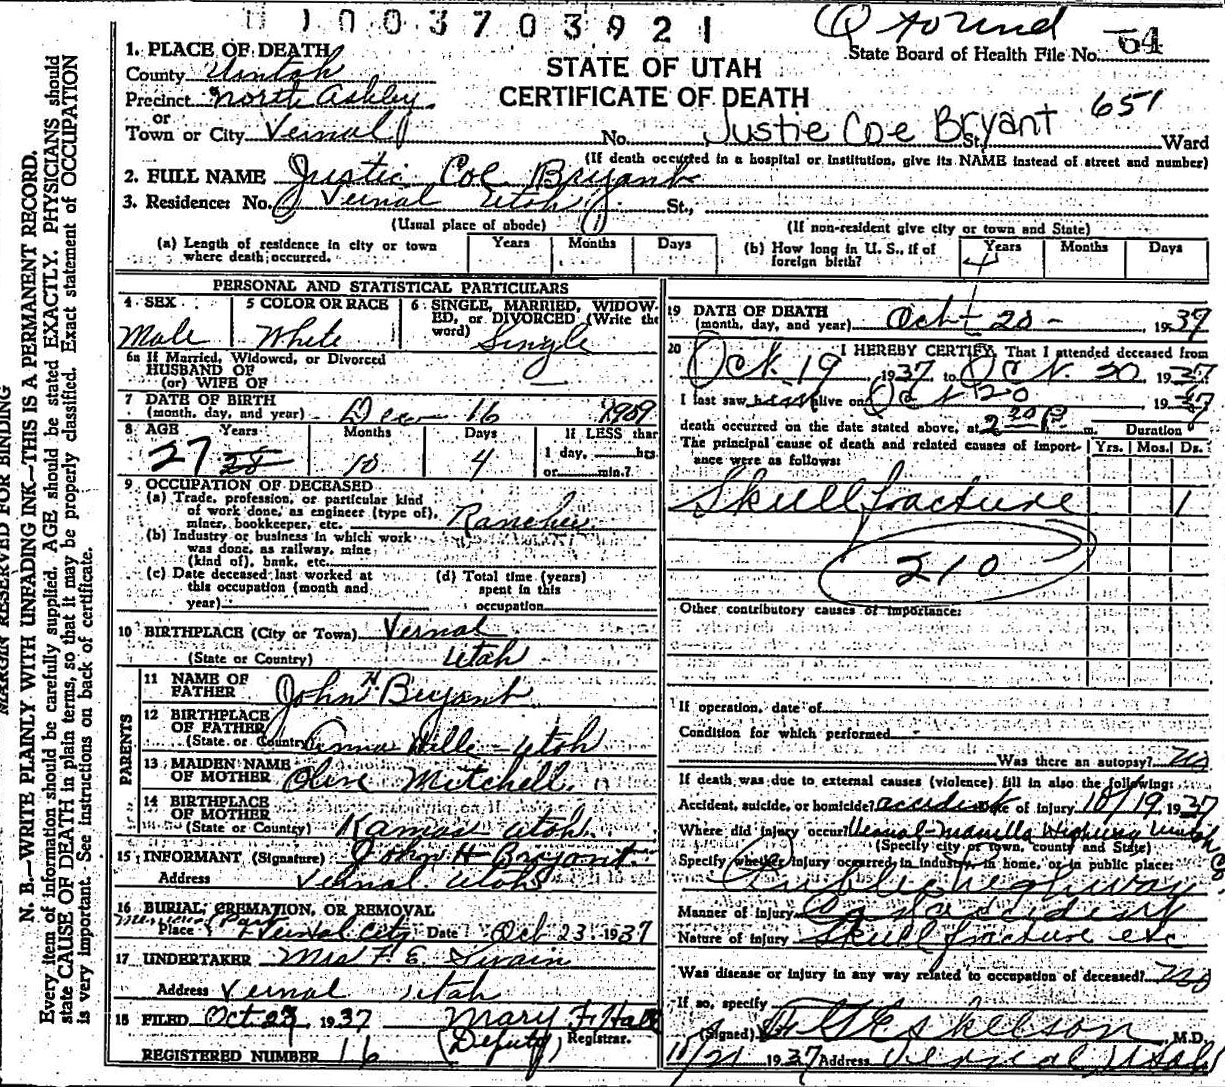 1003703921
State Board of Health File No. 64
1. PLACE OF DEATH
County Uintah
Precinct North Ashley
or
Town or City Vernal
STATE OF UTAH
CERTIFICATE OF DEATH
651
No. Justie Coe Bryant St., Ward
(If death occurred in a hospital or institution, give its NAME instead of street and number)
2. FULL NAME Justie Coe Bryant
3. Residence: No. Vernal Utah St.,
(Usual place of abode)
(If non-resident give city or town and State)
(a) Length of residence in city or town where death occurred.
Years Months Days
(b) How long in U. S., if of foreign birth?
Years Months Days
PERSONAL AND STATISTICAL PARTICULARS
4 SEX
Male
5 COLOR OR RACE
White
6 SINGLE, MARRIED, WIDOWED, or DIVORCED (Write the word)
Single
6a If Married, Widowed, or Divorced
HUSBAND OF
(or) WIFE OF
7 DATE OF BIRTH
(month, day, and year) Dec 16 1909
8 AGE Years Months Days
27 28 10 4
If LESS than
1 day, hrs
or min.?
9 OCCUPATION OF DECEASED
(a) Trade, profession, or particular kind
of work done, as engineer (type of),
miner, bookkeeper, etc. Rancher
(b) Industry or business in which work
was done, as railway, mine
(kind of), bank, etc.
(c) Date deceased last worked at
this occupation (month and
year)
(d) Total time (years)
spent in this
occupation
10 BIRTHPLACE (City or Town) Vernal
(State or Country) Utah
PARENTS
11 NAME OF
FATHER John H Bryant
12 BIRTHPLACE
OF FATHER
(State or Country) Utah
13 MAIDEN NAME
OF MOTHER Olive Mitchell
14 BIRTHPLACE
OF MOTHER
(State or Country) Kamas Utah
15 INFORMANT (Signature) John H Bryant
Address Vernal Utah
16 BURIAL, CREMATION, OR REMOVAL
Place Vernal City Date Oct 23 1937
17 UNDERTAKER Mrs F. E. Swain
Address Vernal Utah
18 FILED Oct 23 1937 Mary F. Hall
(Deputy) Registrar.
REGISTERED NUMBER 16
19 DATE OF DEATH
(month, day, and year) Oct 20 - 1937
20 I HEREBY CERTIFY, That I attended deceased from
Oct. 19, 1937 to Oct. 20 1937
I last saw him alive on Oct 20 1937
death occurred on the date stated above, at 2 30 P m. Duration
The principal cause of death and related causes of importance were as follows:
Yrs. Mos. Ds.
Skull fracture 1
210
Other contributory causes of importance:
If operation, date of
Condition for which performed
Was there an autopsy? no
If death was due to external causes (violence) fill in also the following:
Accident, suicide, or homicide? accident Date of injury 10/19 1937
Where did injury occur? Vernal-Manilla Highway Uintah Co
(Specify city or town, county and State)
Specify whether injury occurred in industry, in home, or in public place:
Public highway
Manner of injury Car accident
Nature of injury Skull fracture etc
Was disease or injury in any way related to occupation of deceased? no
If so, specify
(Signed) Eskelson M.D.
1937 Address Vernal, Utah
MARGIN RESERVED FOR BINDING
N. B.—WRITE PLAINLY WITH UNFADING INK—THIS IS A PERMANENT RECORD.
Every item of information should be carefully supplied. AGE should be stated EXACTLY. PHYSICIANS should
state CAUSE OF DEATH in plain terms, so that it may be properly classified. Exact statement of OCCUPATION
is very important. See instructions on back of certificate.